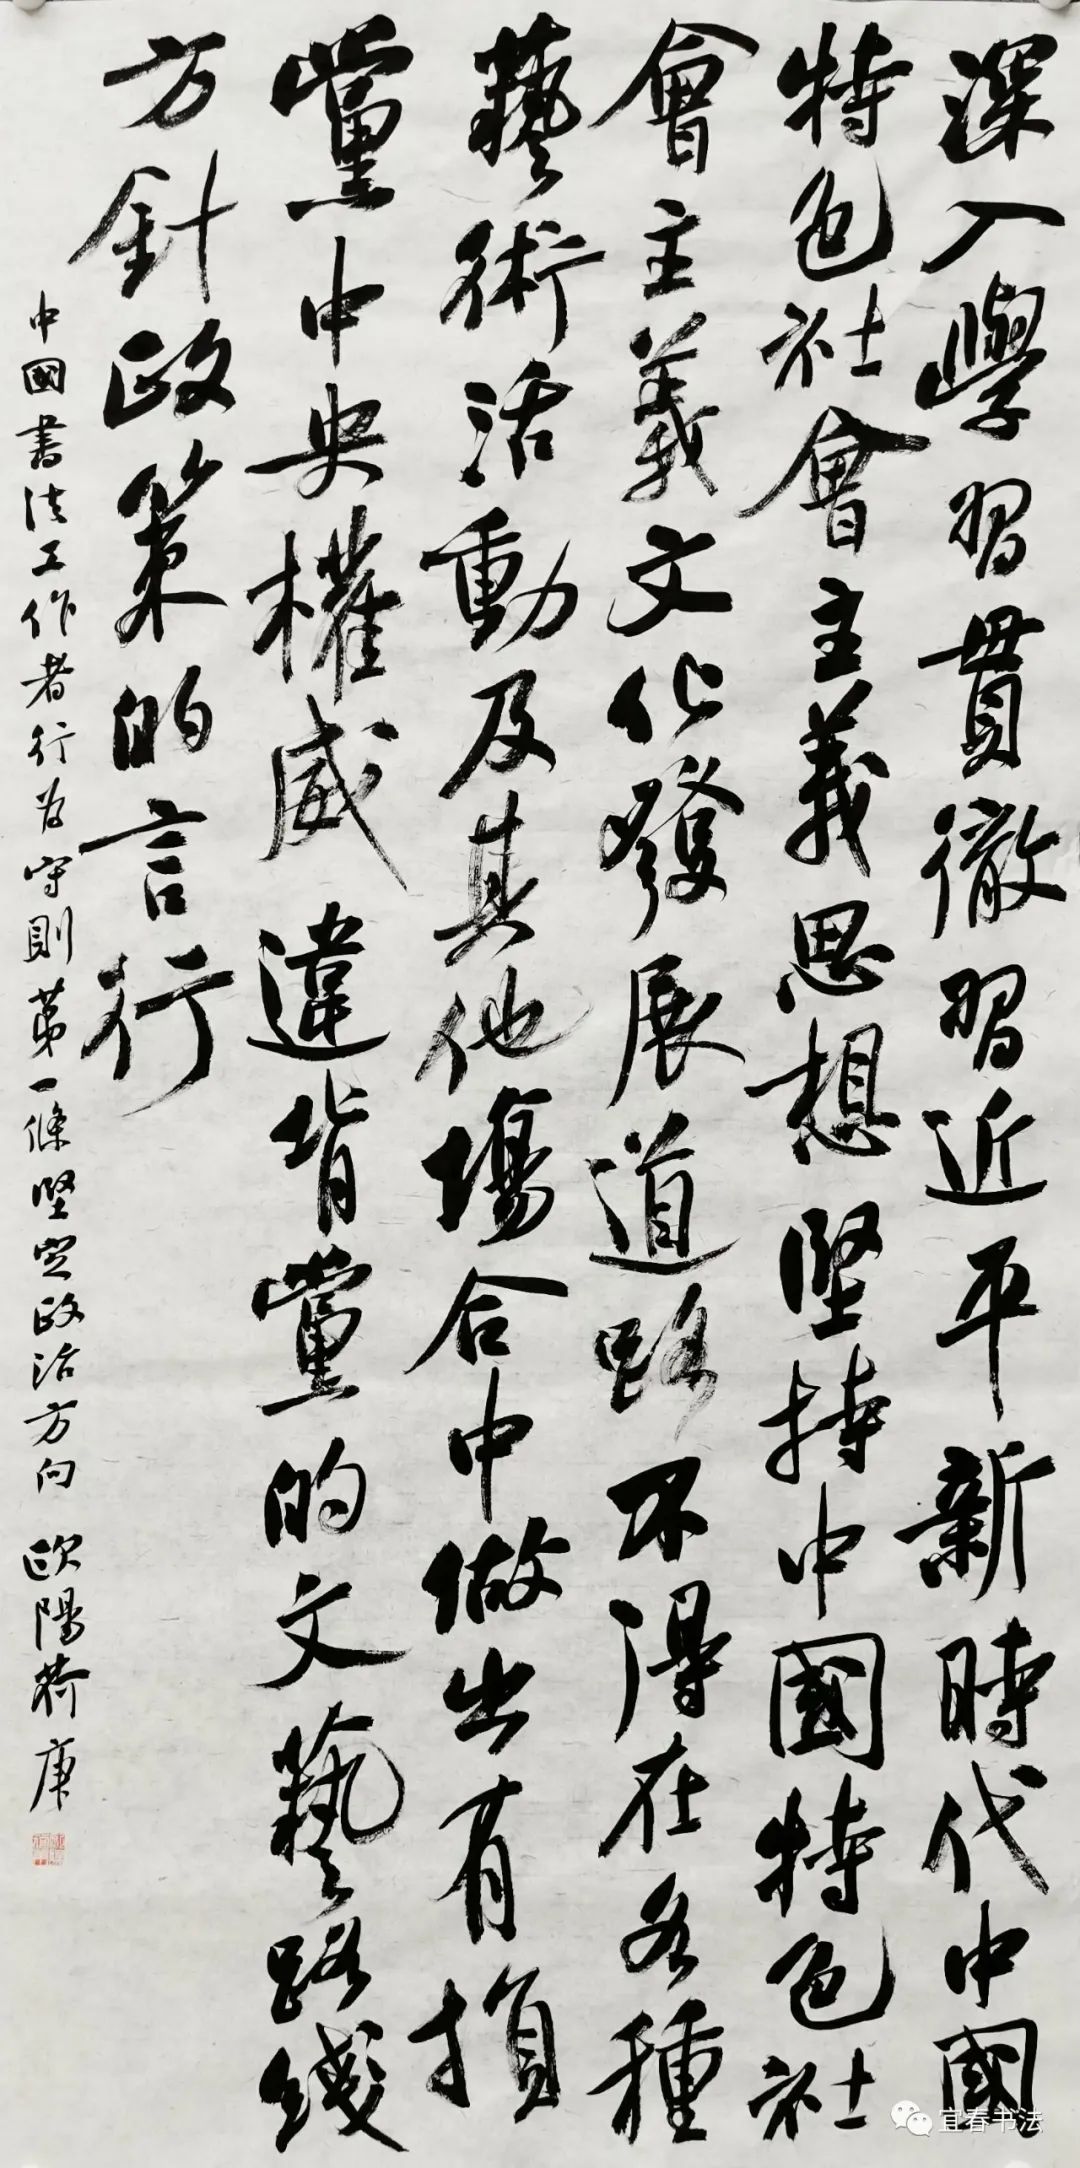 深入學習貫徹習近平新時代中國
特色社會主義思想堅持中國特色社
會主義文化發展道路不得在各種
藝術活動及其他場合中做出有損
黨中央權威違背黨的文藝路线
方針政策的言行
中國書法工作者行为守則第一條堅定政治方向 歐陽荷庚
宜春书法